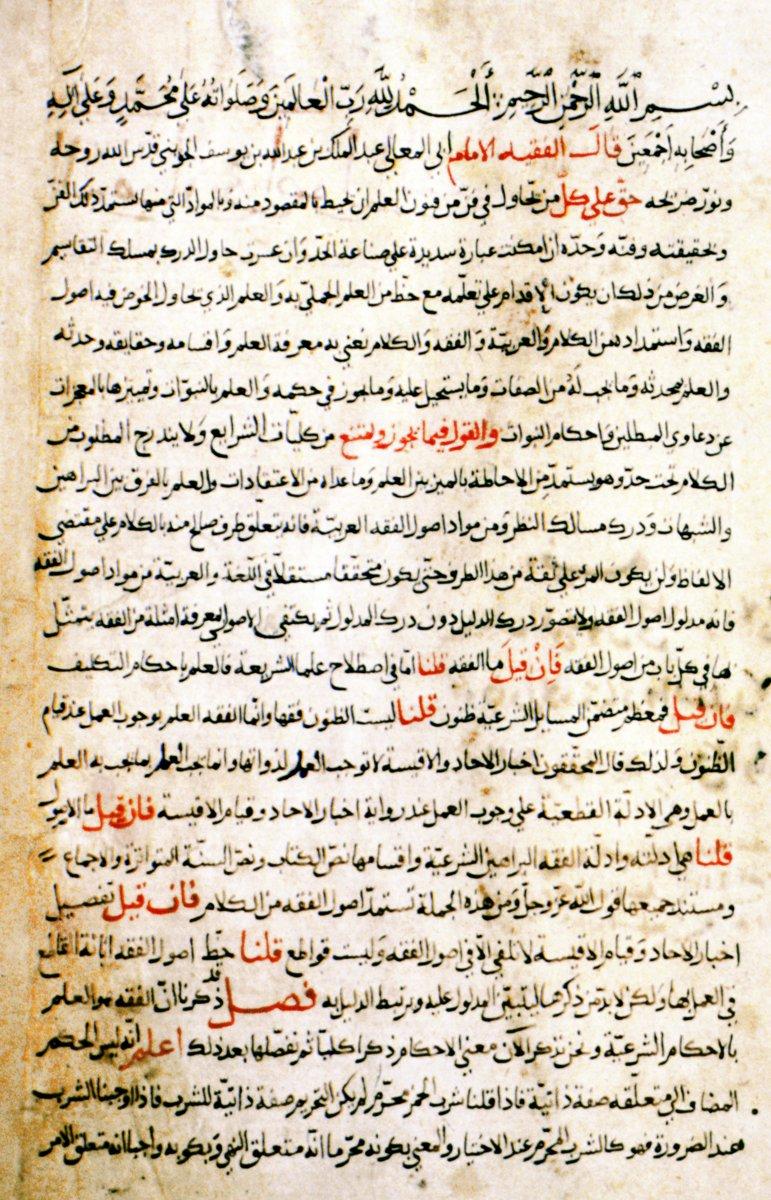 بسم الله الرحمن الرحيم الحمد لله رب العالمين وصلواته على محمد وعلى اله
واصحابه اجمعين قال الفقيه الامام ابى المعالي عبد الملك بن عبد الله بن يوسف الجويني قدس الله روحه
ونور ضريحه حق على كل من يحاول في فن من فنون العلم ان يحيط بالمقصود منه وبالمواد التي منها يستمد ذلك الفن
وبحقيقته وفنه وحده ان امكنت عبارة سديدة على صناعة الحد وان عسر حاول الدرك بمسلك التقاسيم
والغرض من ذلك ان يكون الاقدام على تعلمه مع حظ من العلم الجملي به والعلم الذي يحاول الخوض فيه اصول
الفقه واستمداده من الكلام والعربية والفقه والكلام نعني به معرفة العلم واقسامه وحقايقه وحدثه
والعلم بمحدثه وما يجب له من الصفات وما يستحيل عليه وما يجوز في حكمه والعلم بالنبوات وتميزها بالمعجزات
عن دعاوى المبطلين واحكام النبوات والقول فيما يجوز ويمتنع من كليات الشرايع ولا يندرج المطلوب من
الكلام تحت حد وهو يستمد من الاحاطة بالميز بين العلم وما عداه من الاعتقادات والعلم بالفرق بين البراهين
والشبهات ودرك مسالك النظر ومن مواد اصول الفقه العربية فانه يتعلق طرف صالح منه بالكلام على مقتضى
الالفاظ ولن يكون المرء على ثقة من هذا الطرف حتى يكون متحققا مستقلا في اللغة والعربية ومن مواد اصول الفقه
فانه مدلول اصول الفقه ولا يتصور درك الدليل دون درك المدلول ثم يكتفي الاصولي بمعرفة امثلة من الفقه يتمثل
بها في كل باب من اصول الفقه فان قيل ما الفقه قلنا اما في اصطلاح علماء الشريعة فالعلم باحكام التكليف
فان قيل فمعظم متضمن المسايل الشرعية ظنون قلنا ليست الظنون فقها وانما الفقه العلم بوجوب العمل عند قيام
الظنون ولذلك قال المحققون اخبار الاحاد والاقيسة لا توجب العمل لذواتها وانما يجب العمل بما يجب به العلم
بالعمل وهي الادلة القطعية على وجوب العمل عند رواية اخبار الاحاد وقيام الاقيسة فان قيل ما الاصول
قلنا هي ادلته وادلة الفقه البراهين الشرعية واقسامها نص الكتاب ونص السنة المتواترة والاجماع
ومستند جميعها قول الله عز وجل ومن هذه الجملة تستمد اصول الفقه من الكلام فان قيل تفصيل
اخبار الاحاد وقيام الاقيسة لا تلفى الا في اصول الفقه وليست قواطع قلنا حظ اصول الفقه ابانة القاطع
في العمل بها ولكن لا بد من ذكرها ليتبين المدلول عليه ويرتبط الدليل به فصل قد ذكرنا ان الفقه هو العلم
بالاحكام الشرعية ونحن نذكر الآن معنى الاحكام ذكرا كليا ثم نفصلها بعد ذلك اعلم انه ليس الحكم
المضاف الى متعلقه صفة ذاتية فاذا قلنا شرب الخمر محرم لم يكن التحريم صفة ذاتية للشرب فاذا اوجبنا الشرب
عند الضرورة فهو كالشرب المحرم عند الاختيار والمعني بكونه محرما انه متعلق النهي وبكونه واجبا انه متعلق الامر